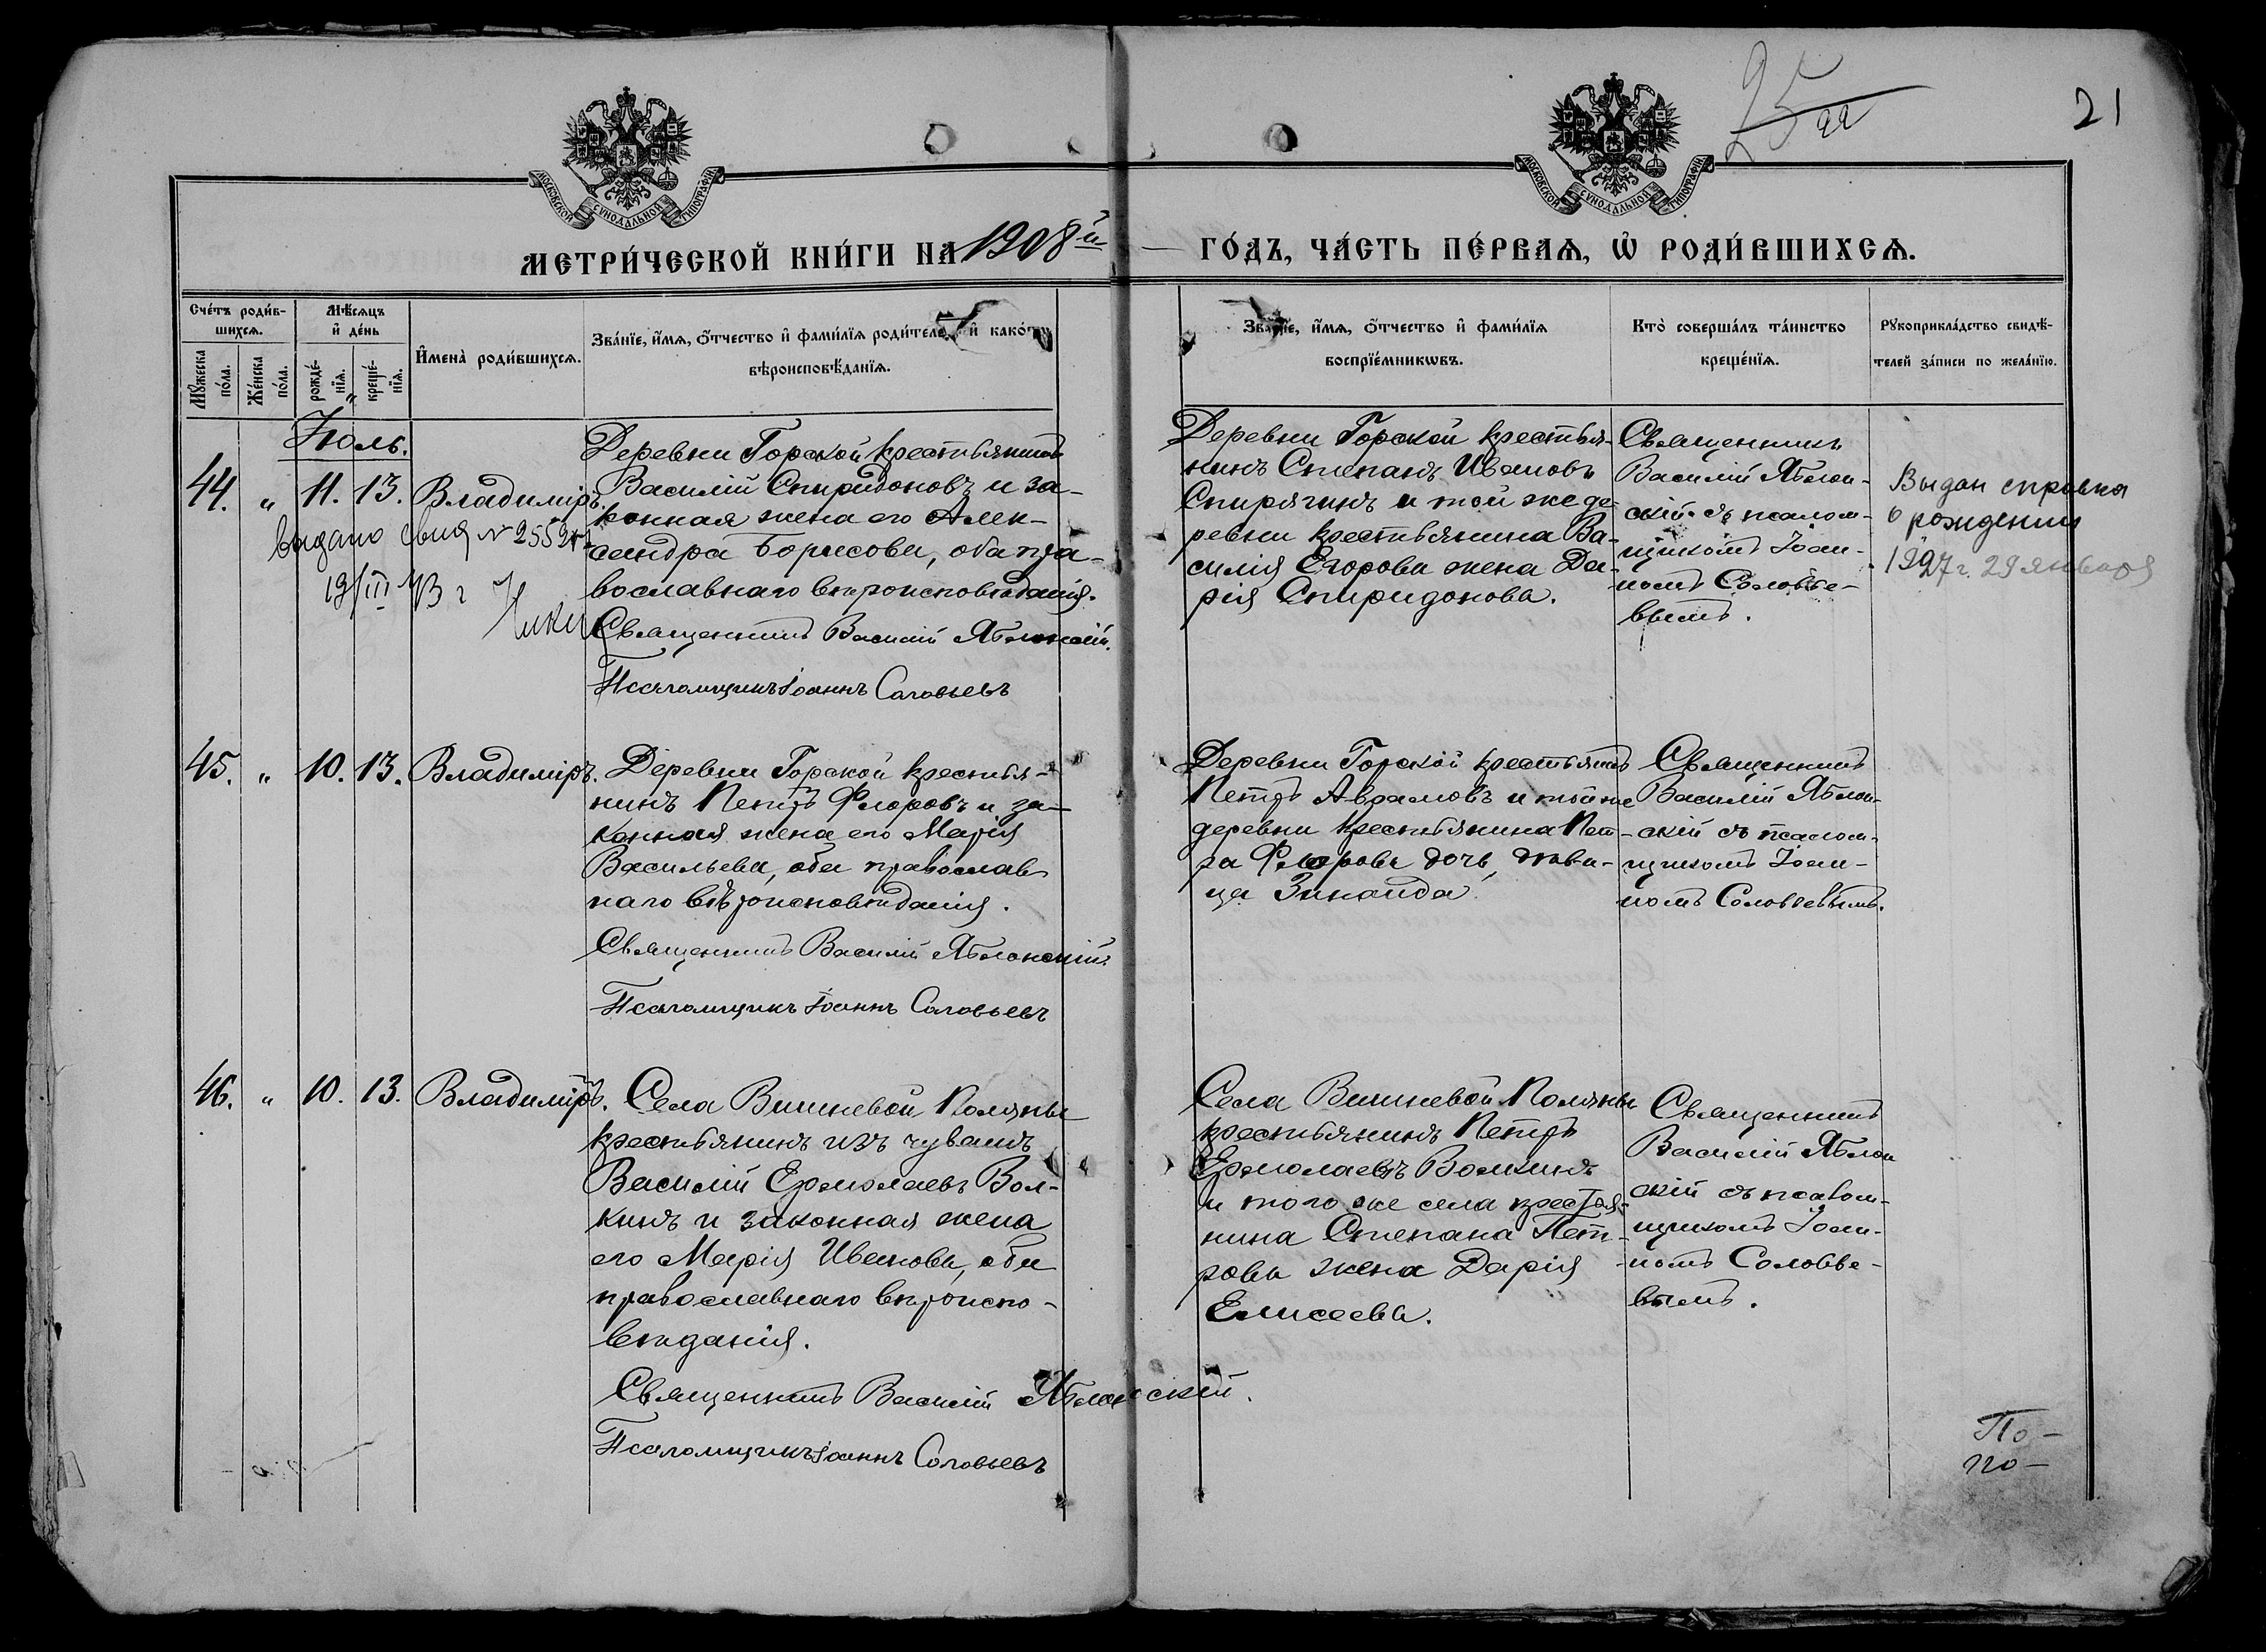 21
МОСКОВСКОЙ СѴНОДАЛЬНОЙ ТИПОГРАФІИ
МОСКОВСКОЙ СѴНОДАЛЬНОЙ ТИПОГРАФІИ
МЕТРИ́ЧЕСКОЙ КНИ́ГИ НА 1908й
ГО́ДЪ, ЧА́СТЬ ПЕ́РВАѦ, Ѽ РОДИ́ВШИХСѦ.
Сче́тъ роди́в-
шихсѧ.
Мѣ́сѧцъ
и҆ де́нь
Мꙋ́жеска
по́ла.
Же́нска
по́ла.
рожде́-
нїѧ.
креще́-
нїѧ.
И҆мена̀ роди́вшихсѧ.
Зва́нїе, и҆́мѧ, ѻ҆́тчество и҆ фами́лїѧ роди́телей и҆ како́гѡ
вѣроисповѣ́данїѧ.
Зва́нїе, и҆́мѧ, ѻ҆́тчество и҆ фами́лїѧ
воспрїе́мникѡвъ.
Кто̀ соверша́лъ та́инство
креще́нїѧ.
Рꙋкоприкла́дство свидѣ́-
телей за́писи по жела́нїю.
Июль.
44. " 11. 13. Владиміръ.
Деревни Горской крестьянинъ
Василій Спиридоновъ и за-
конная жена его Алек-
сандра Борисова, оба пра-
вославнаго вѣроисповѣданія.
Священникъ Василій Яблонскій.
Псаломщикъ Іоаннъ Соловьевъ
выдано свид № 2552
19/III 43 г
Деревни Горской крестья-
нинъ Степанъ Ивановъ
Спирягинъ и той же де-
ревни крестьянина Ва-
силія Егорова жена Да-
рія Спиридонова.
Священникъ
Василій Яблон-
скій съ псалом-
щикомъ Іоан-
номъ Соловье-
вымъ.
Выдан справка
о рождении
1927 г. 29 января
45. " 10. 13. Владиміръ.
Деревни Горской крестья-
нинъ Петръ Флоровъ и за-
конная жена его Марія
Васильева, оба православ-
наго вѣроисповѣданія.
Священникъ Василій Яблонскій.
Псаломщикъ Іоаннъ Соловьевъ
Деревни Горской крестьянинъ
Петръ Авраамовъ и той же
деревни крестьянина Пет-
ра Флорова дочь, дѣви-
ца Зинаида.
Священникъ
Василій Яблон-
скій съ псалом-
щикомъ Іоан-
номъ Соловьевымъ.
46. " 10. 13. Владиміръ.
Села Вишневой Поляны
крестьянинъ изъ чувашъ
Василій Ермолаевъ Вол-
кинъ и законная жена
его Марія Иванова, оба
православнаго вѣроиспо-
вѣданія.
Священникъ Василій Яблонскій.
Псаломщикъ Іоаннъ Соловьевъ
Села Вишневой Поляны
крестьянинъ Петръ
Ермолаевъ Волкинъ
и того же села крестья-
нина Степана Пет-
рова жена Дарія
Елисеева.
Священникъ
Василій Яблон
скій съ псалом-
щикомъ Іоан-
номъ Соловье-
вымъ.
По-
по-